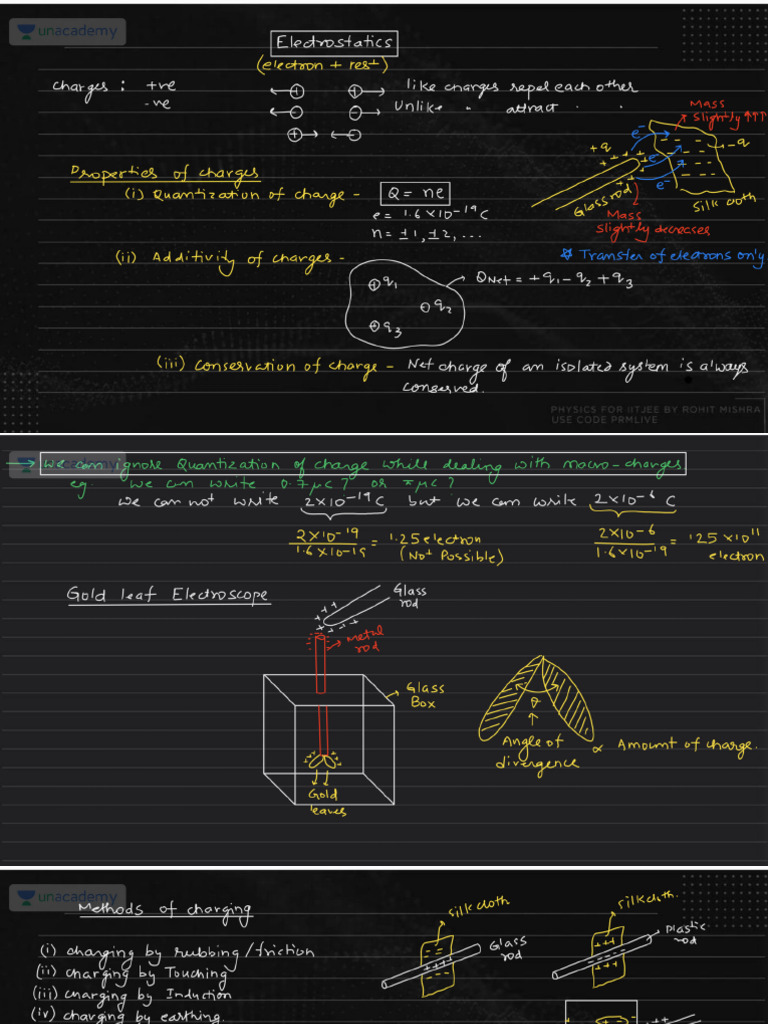 unacademy
Electrostatics
(electron + rest)
charges : +ve
-ve
like charges repel each other
Unlike " attract " "
Mass
slightly ↑↑↑
e-
-q
+q
e-
e-
Glass rod
Silk cloth
Mass
slightly decreases
Transfer of electrons only
Properties of charges
(i) Quantization of charge - Q = ne
e = 1.6 × 10-19 C
n = ±1, ±2, ...
(ii) Additivity of charges -
q1
q2
q3
QNet = +q1 - q2 + q3
(iii) Conservation of charge - Net charge of an isolated system is always
conserved.
PHYSICS FOR IITJEE BY ROHIT MISHRA
USE CODE PRMLIVE
unacademy
→ We can ignore Quantization of charge while dealing with macro-charges
eg. We can write 0.7μC? or πμC?
We can not write 2×10-19 C but we can write 2×10-6 C
2×10-19 / 1.6×10-19 = 1.25 electron
(Not Possible)
2×10-6 / 1.6×10-19 = 125×1011
electron
Gold leaf Electroscope
Glass
rod
Metal
rod
Glass
Box
Gold
leaves
θ
Angle of
divergence ∝ Amount of charge.
unacademy
Methods of charging
(i) charging by rubbing/friction
(ii) charging by Touching
(iii) charging by Induction
(iv) charging by earthing.
silk cloth
Glass
rod
silk cloth.
Plastic
rod